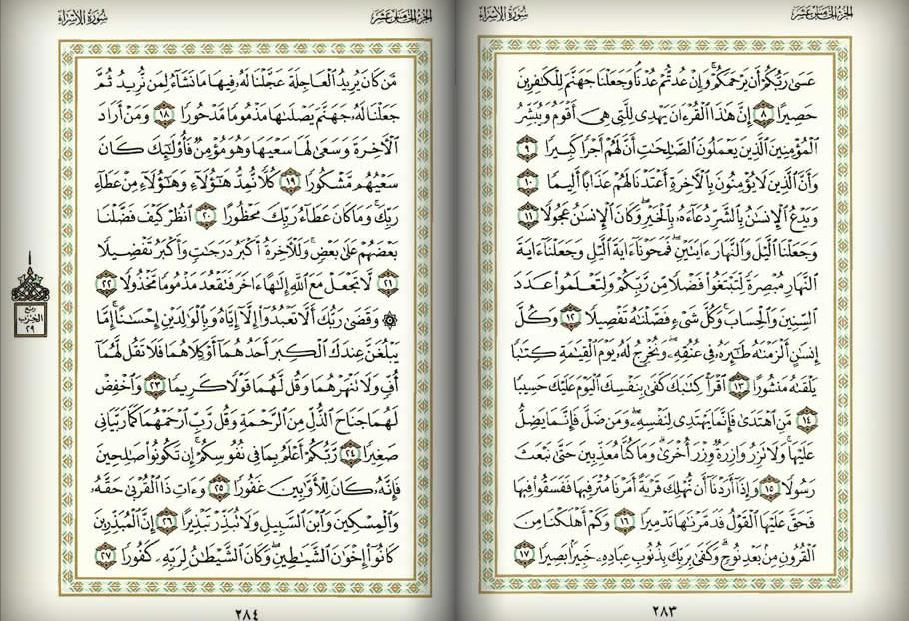 الجزء الخامس عشر
سورة الإسراء
عَسَىٰ رَبُّكُمْ أَن يَرْحَمَكُمْ ۚ وَإِنْ عُدتُّمْ عُدْنَا ۘ وَجَعَلْنَا جَهَنَّمَ لِلْكَافِرِينَ
حَصِيرًا ٨ إِنَّ هَٰذَا الْقُرْآنَ يَهْدِي لِلَّتِي هِيَ أَقْوَمُ وَيُبَشِّرُ
الْمُؤْمِنِينَ الَّذِينَ يَعْمَلُونَ الصَّالِحَاتِ أَنَّ لَهُمْ أَجْرًا كَبِيرًا ٩
وَأَنَّ الَّذِينَ لَا يُؤْمِنُونَ بِالْآخِرَةِ أَعْتَدْنَا لَهُمْ عَذَابًا أَلِيمًا ١٠
وَيَدْعُ الْإِنسَانُ بِالشَّرِّ دُعَاءَهُ بِالْخَيْرِ ۖ وَكَانَ الْإِنسَانُ عَجُولًا ١١
وَجَعَلْنَا اللَّيْلَ وَالنَّهَارَ آيَتَيْنِ ۖ فَمَحَوْنَا آيَةَ اللَّيْلِ وَجَعَلْنَا آيَةَ
النَّهَارِ مُبْصِرَةً لِّتَبْتَغُوا فَضْلًا مِّن رَّبِّكُمْ وَلِتَعْلَمُوا عَدَدَ
السِّنِينَ وَالْحِسَابَ ۚ وَكُلَّ شَيْءٍ فَصَّلْنَاهُ تَفْصِيلًا ١٢ وَكُلَّ
إِنسَانٍ أَلْزَمْنَاهُ طَائِرَهُ فِي عُنُقِهِ ۖ وَنُخْرِجُ لَهُ يَوْمَ الْقِيَامَةِ كِتَابًا
يَلْقَاهُ مَنشُورًا ١٣ اقْرَأْ كِتَابَكَ كَفَىٰ بِنَفْسِكَ الْيَوْمَ عَلَيْكَ حَسِيبًا
١٤ مَّنِ اهْتَدَىٰ فَإِنَّمَا يَهْتَدِي لِنَفْسِهِ ۖ وَمَن ضَلَّ فَإِنَّمَا يَضِلُّ
عَلَيْهَا ۚ وَلَا تَزِرُ وَازِرَةٌ وِزْرَ أُخْرَىٰ ۗ وَمَا كُنَّا مُعَذِّبِينَ حَتَّىٰ نَبْعَثَ
رَسُولًا ١٥ وَإِذَا أَرَدْنَا أَن نُّهْلِكَ قَرْيَةً أَمَرْنَا مُتْرَفِيهَا فَفَسَقُوا فِيهَا
فَحَقَّ عَلَيْهَا الْقَوْلُ فَدَمَّرْنَاهَا تَدْمِيرًا ١٦ وَكَمْ أَهْلَكْنَا مِنَ
الْقُرُونِ مِن بَعْدِ نُوحٍ ۗ وَكَفَىٰ بِرَبِّكَ بِذُنُوبِ عِبَادِهِ خَبِيرًا بَصِيرًا ١٧
٢٨٣
الجزء الخامس عشر
سورة الإسراء
مَّن كَانَ يُرِيدُ الْعَاجِلَةَ عَجَّلْنَا لَهُ فِيهَا مَا نَشَاءُ لِمَن نُّرِيدُ ثُمَّ
جَعَلْنَا لَهُ جَهَنَّمَ يَصْلَاهَا مَذْمُومًا مَّدْحُورًا ١٨ وَمَنْ أَرَادَ
الْآخِرَةَ وَسَعَىٰ لَهَا سَعْيَهَا وَهُوَ مُؤْمِنٌ فَأُولَٰئِكَ كَانَ
سَعْيُهُم مَّشْكُورًا ١٩ كُلًّا نُّمِدُّ هَٰؤُلَاءِ وَهَٰؤُلَاءِ مِنْ عَطَاءِ
رَبِّكَ ۚ وَمَا كَانَ عَطَاءُ رَبِّكَ مَحْظُورًا ٢٠ انظُرْ كَيْفَ فَضَّلْنَا
بَعْضَهُمْ عَلَىٰ بَعْضٍ ۚ وَلَلْآخِرَةُ أَكْبَرُ دَرَجَاتٍ وَأَكْبَرُ تَفْضِيلًا
٢١ لَّا تَجْعَلْ مَعَ اللَّهِ إِلَٰهًا آخَرَ فَتَقْعُدَ مَذْمُومًا مَّخْذُولًا ٢٢
۞ وَقَضَىٰ رَبُّكَ أَلَّا تَعْبُدُوا إِلَّا إِيَّاهُ وَبِالْوَالِدَيْنِ إِحْسَانًا ۚ إِمَّا
يَبْلُغَنَّ عِندَكَ الْكِبَرَ أَحَدُهُمَا أَوْ كِلَاهُمَا فَلَا تَقُل لَّهُمَا
أُفٍّ وَلَا تَنْهَرْهُمَا وَقُل لَّهُمَا قَوْلًا كَرِيمًا ٢٣ وَاخْفِضْ
لَهُمَا جَنَاحَ الذُّلِّ مِنَ الرَّحْمَةِ وَقُل رَّبِّ ارْحَمْهُمَا كَمَا رَبَّيَانِي
صَغِيرًا ٢٤ رَّبُّكُمْ أَعْلَمُ بِمَا فِي نُفُوسِكُمْ ۚ إِن تَكُونُوا صَالِحِينَ
فَإِنَّهُ كَانَ لِلْأَوَّابِينَ غَفُورًا ٢٥ وَآتِ ذَا الْقُرْبَىٰ حَقَّهُ
وَالْمِسْكِينَ وَابْنَ السَّبِيلِ وَلَا تُبَذِّرْ تَبْذِيرًا ٢٦ إِنَّ الْمُبَذِّرِينَ
كَانُوا إِخْوَانَ الشَّيَاطِينِ ۖ وَكَانَ الشَّيْطَانُ لِرَبِّهِ كَفُورًا ٢٧
ربع
الحزب
٢٩
٢٨٤